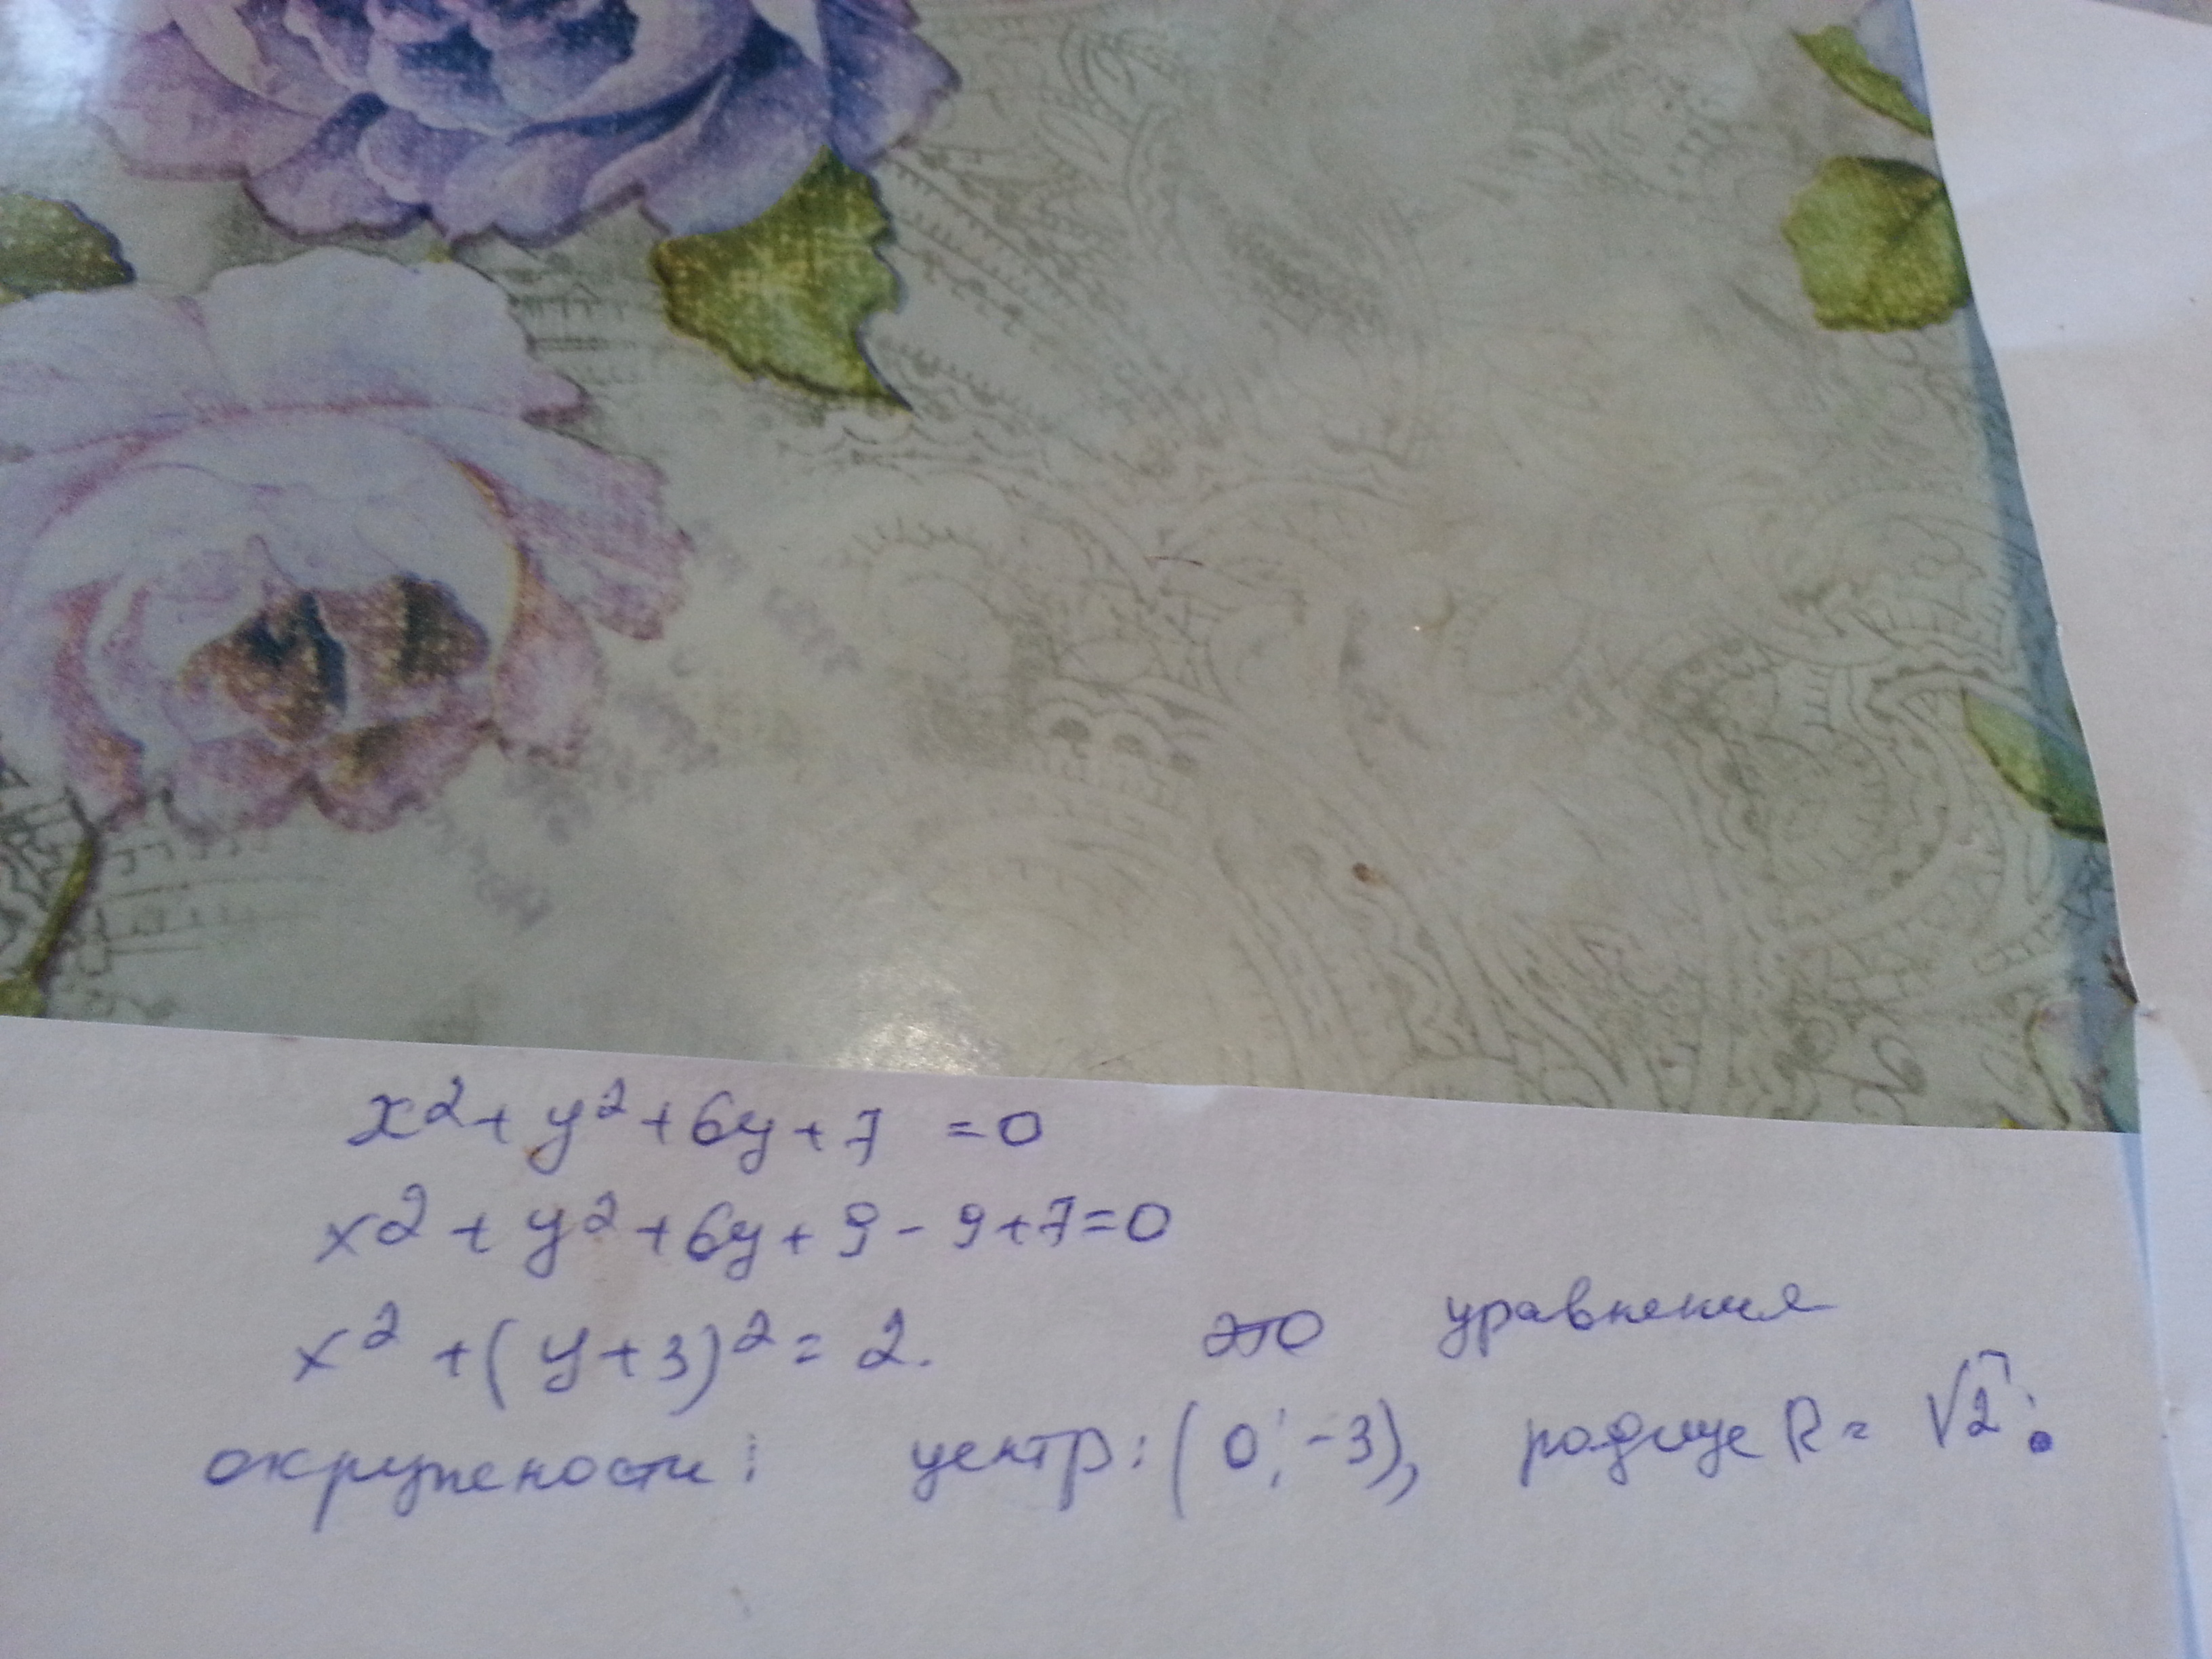 x² + y² + 6y + 7 = 0
x² + y² + 6y + 9 - 9 + 7 = 0
x² + (y + 3)² = 2. это уравнения
окружености: центр: (0; -3), радиус R = √2.